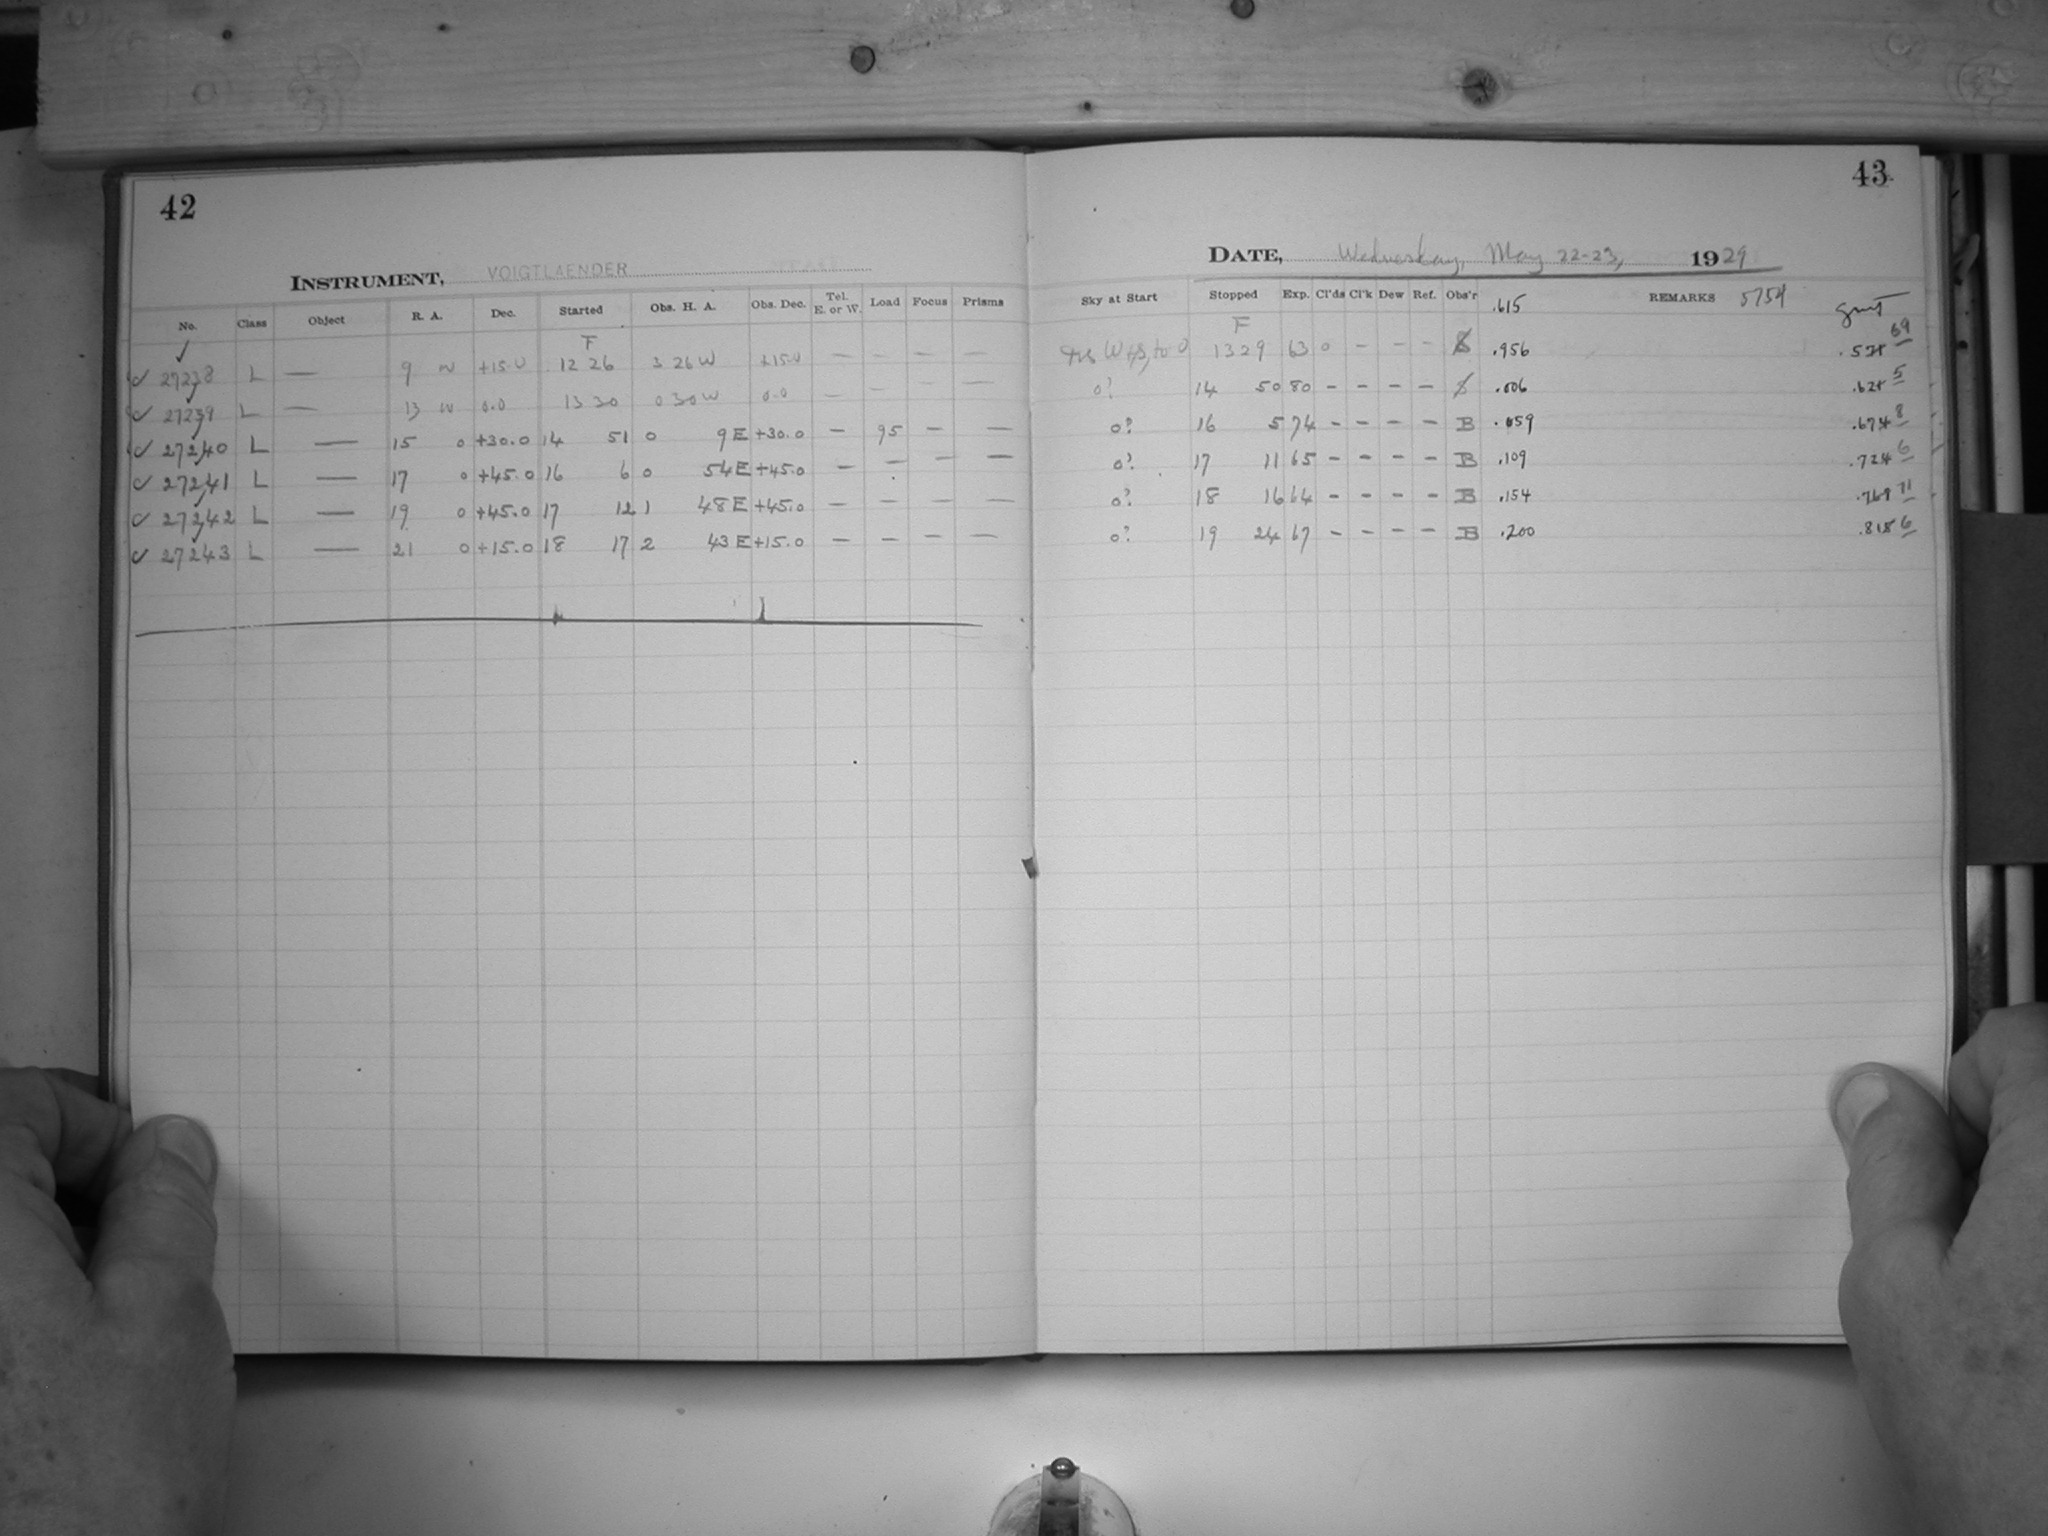 42
INSTRUMENT, VOIGTLAENDER
No. Class Object R. A. Dec. Started Obs. H. A. Obs. Dec. Tel. E. or W. Load Focus Prisms
F
✓ 27238 L — 9 +15.0 12 26 3 26 W +15.0 — — — —
✓ 27239 L — 13 0.0 13 30 0 30 W 0.0 — — — —
✓ 27240 L — 15 0 +30.0 14 51 0 9 E +30.0 — 95 — —
✓ 27241 L — 17 0 +45.0 16 6 0 54 E +45.0 — — — —
✓ 27242 L — 19 0 +45.0 17 12 1 48 E +45.0 — — — —
✓ 27243 L — 21 0 +15.0 18 17 2 43 E +15.0 — — — —
43
DATE, Wednesday, May 22-23, 1929
Sky at Start Stopped Exp. Cl'ds Cl'k Dew Ref. Obs'r .615 REMARKS 5754 GMT
F
13 29 63 0 - - - .956 69
0? 14 50 80 - - - - .006 5
0? 16 5 74 - - - - B .059 .674 8
0? 17 11 65 - - - - B .109 .724 6
0? 18 16 64 - - - - B .154 .769 71
0? 19 24 67 - - - - B .200 .815 6